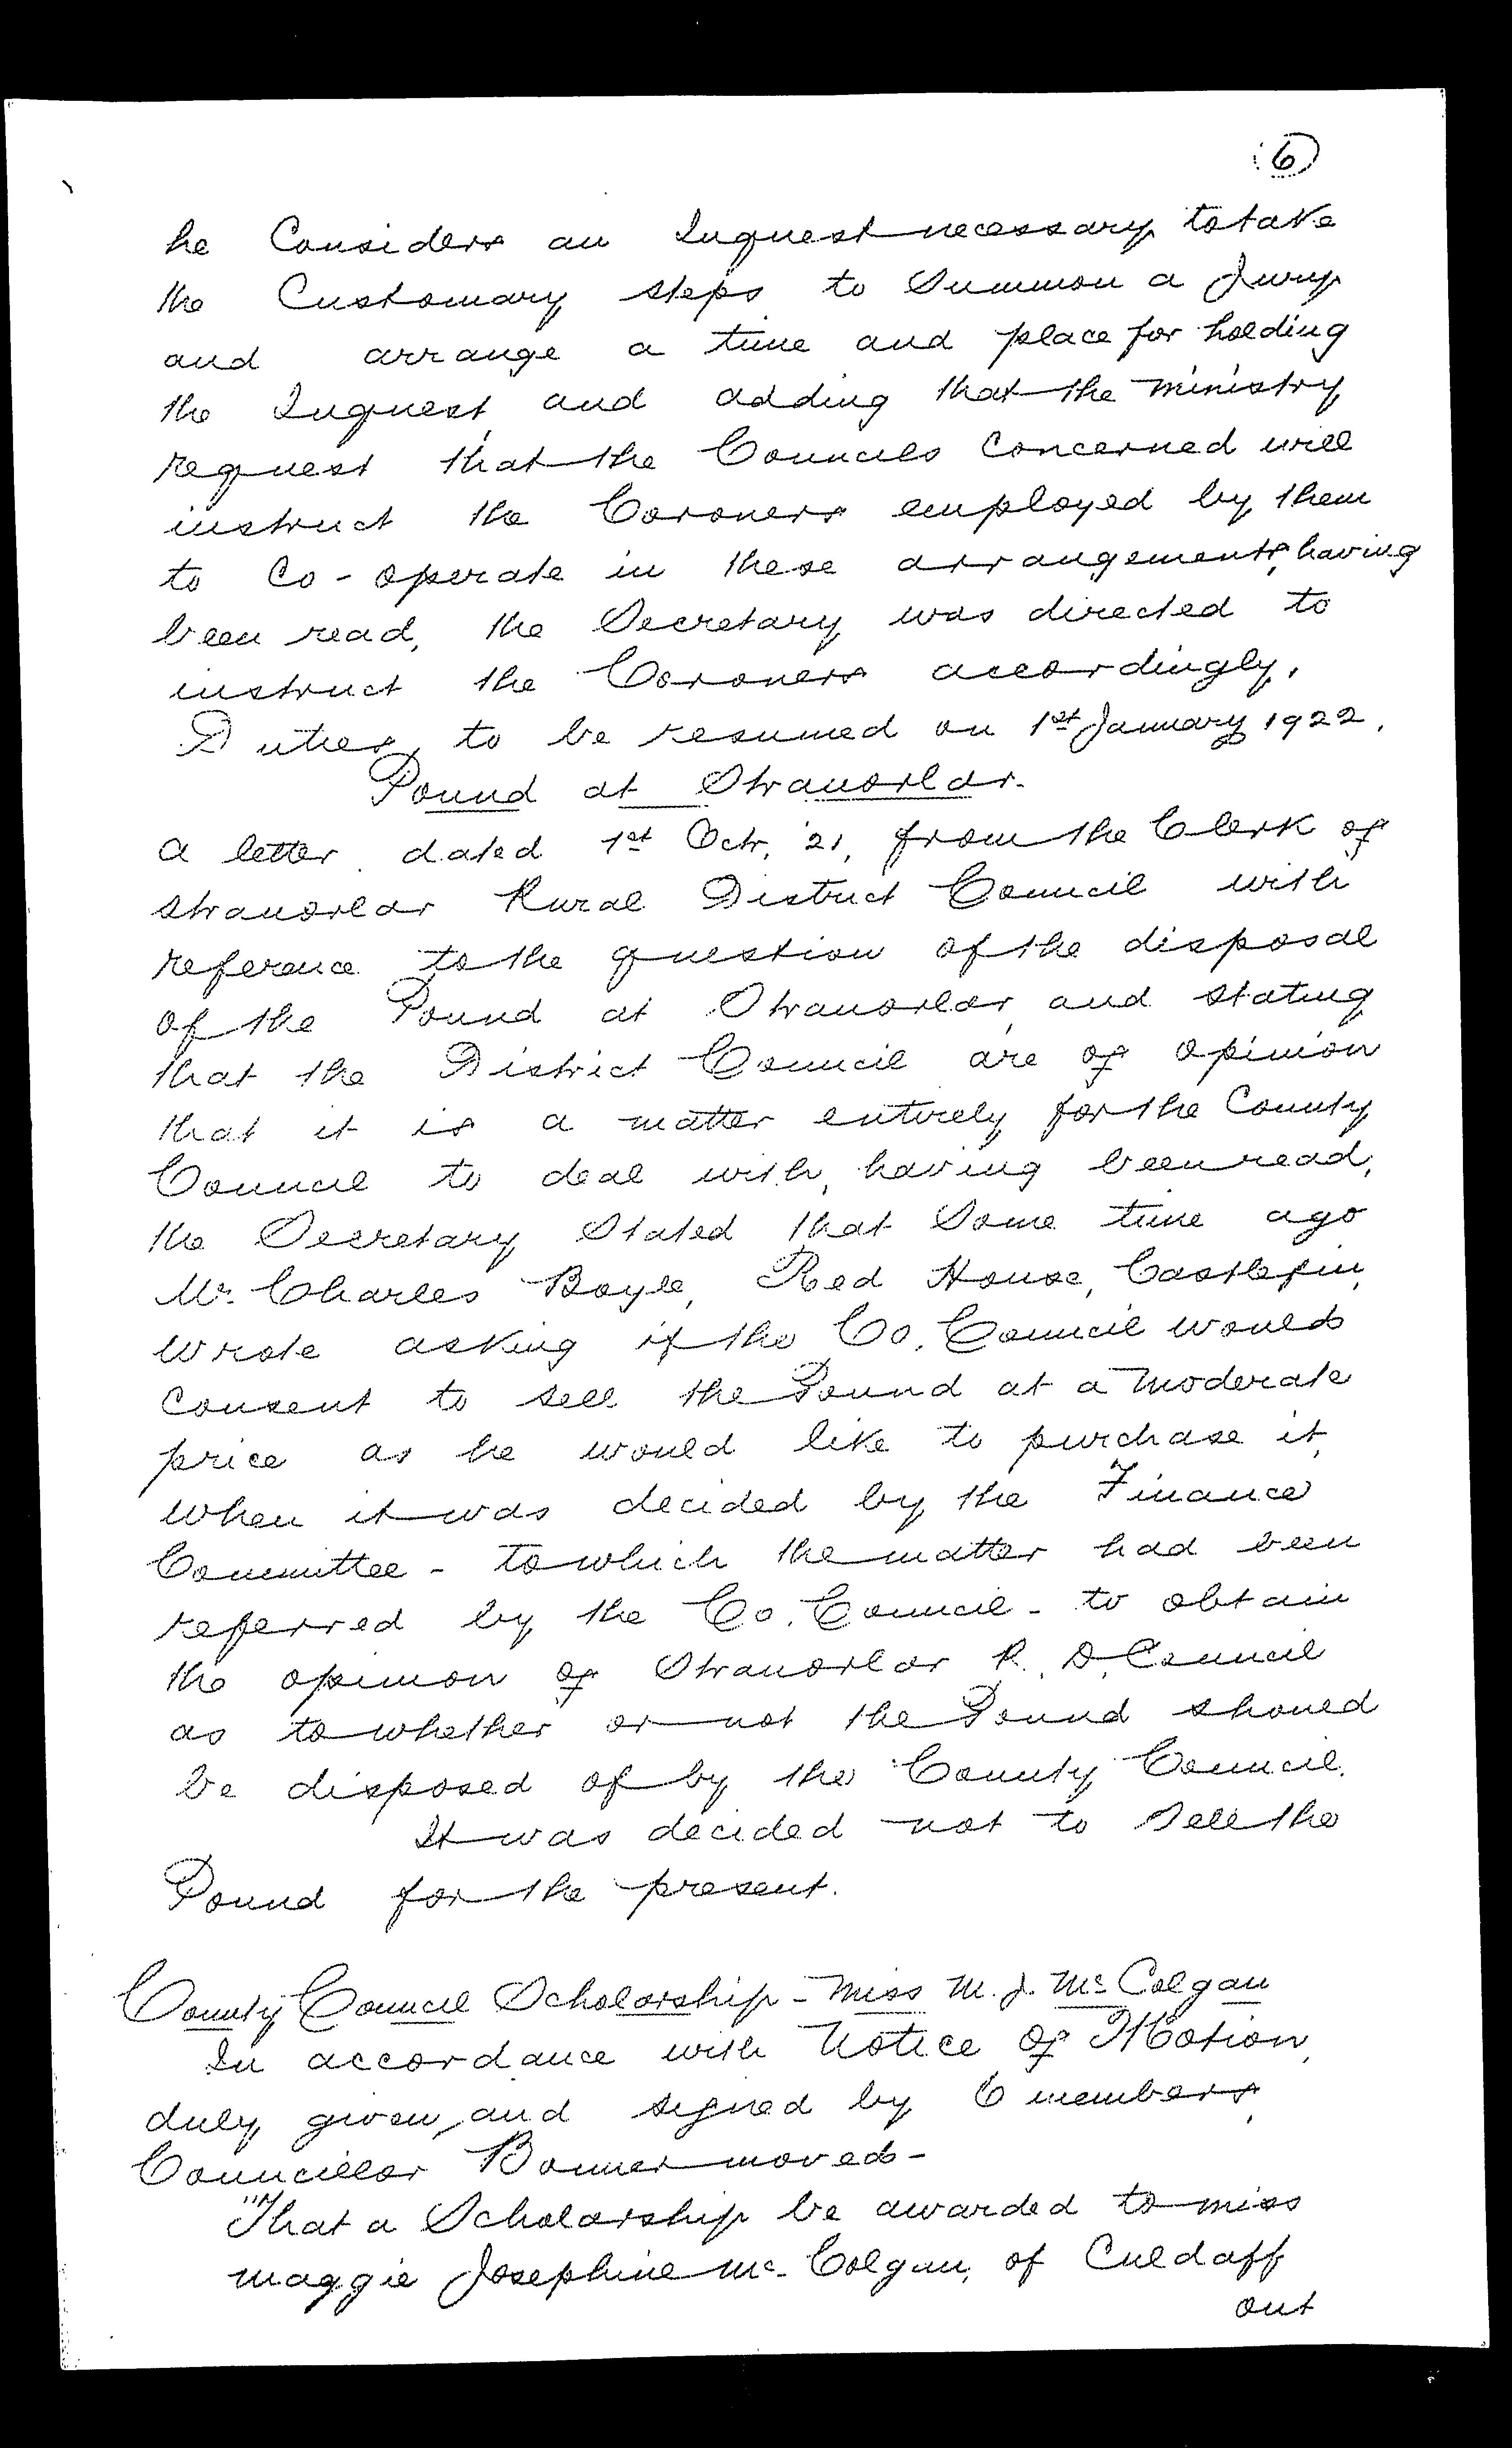 6
he Considers an Inquest necessary to take
the Customary steps to Summon a Jury
and arrange a time and place for holding
the Inquest, and adding that the Ministry
request that the Councils Concerned will
instruct the Coroners employed by them
to Co-operate in these arrangements, having
been read, the Secretary was directed to
instruct the Coroners accordingly.
Duties, to be resumed on 1st January 1922.
Pound at Stranorlar.
A letter dated 1st Octr. '21, from the Clerk of
Stranorlar Rural District Council with
reference to the question of the disposal
of the Pound at Stranorlar, and stating
that the District Council are of opinion
that it is a matter entirely for the County
Council to deal with, having been read,
the Secretary Stated that Some time ago
Mr. Charles Boyle, Red House, Castlefin,
wrote asking if the Co. Council would
consent to sell the Pound at a moderate
price as he would like to purchase it,
when it was decided by the Finance
Committee - to which the matter had been
referred by the Co. Council - to obtain
the opinion of Stranorlar R. D. Council
as to whether or not the Pound should
be disposed of by the County Council.
It was decided not to Sell the
Pound for the present.
County Council Scholarship - Miss M. J. McColgan
In accordance with Notice of Motion,
duly given, and signed by 6 members,
Councillor Bonner moved -
"That a Scholarship be awarded to Miss
Maggie Josephine Mc. Colgan, of Culdaff
out